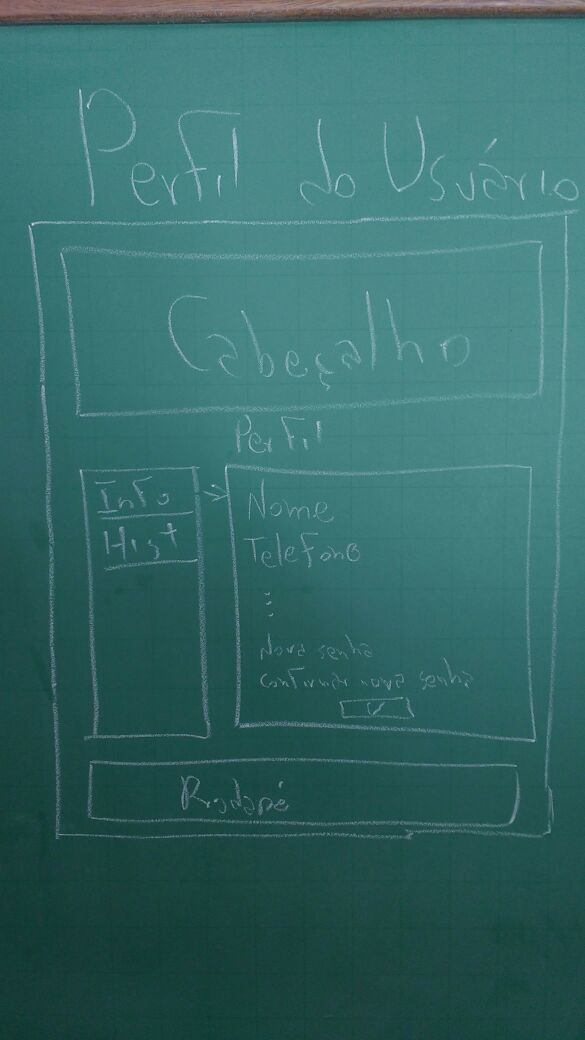 Perfil do Usuário
Cabeçalho
Perfil
Info
Hist
Nome
Telefone
Nova senha
Confirmar nova senha
Rodapé